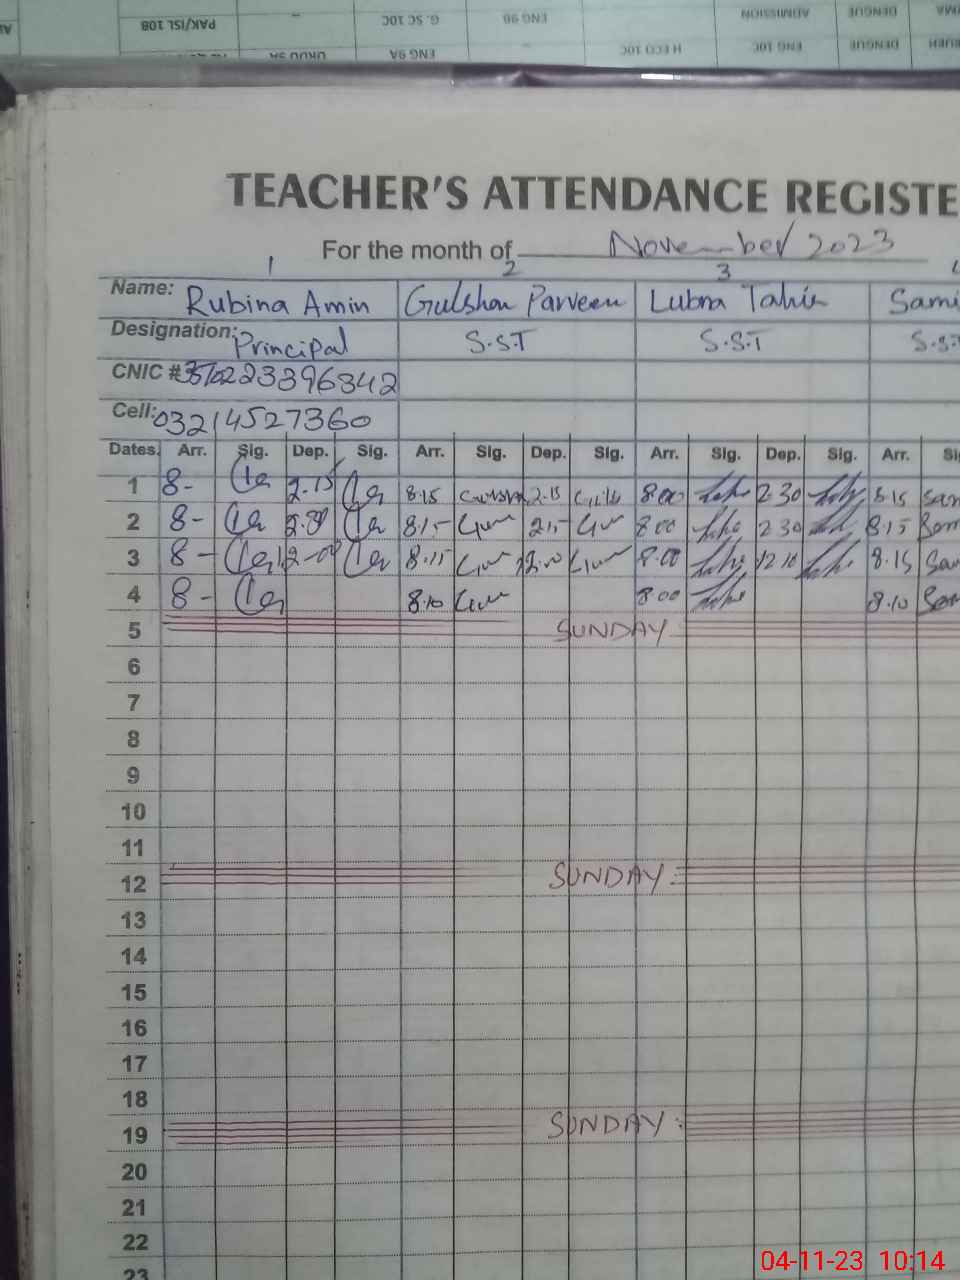 PAK/ISL 108 - G. SC 10C ENG 9B ADMISSION DENGUE
URDU 9A ENG 9A H ECO 10C ENG 10C DENGUE
TEACHER'S ATTENDANCE REGISTE
For the month of November 2023
1 2 3
Name: Rubina Amin Gulshan Parveen Lubna Tahir Sami
Designation: Principal S.S.T S.S.T S.S.T
CNIC #
Cell: 03214527360
Dates. Arr. Sig. Dep. Sig. Arr. Sig. Dep. Sig. Arr. Sig. Dep. Sig. Arr. Si
1 8- 2.15 8.15 2.15 8.00 2 30 8.15 Sam
2 8- 2.30 8.15 2.15 8.00 2 30 8.15 Sam
3 8- 12-00 8.15 12.00 8.00 12 10 8.15 Sam
4 8- 8.10 8.00 8.10 Sam
5 SUNDAY
6
7
8
9
10
11
12 SUNDAY
13
14
15
16
17
18
19 SUNDAY
20
21
22
23
04-11-23 10:14